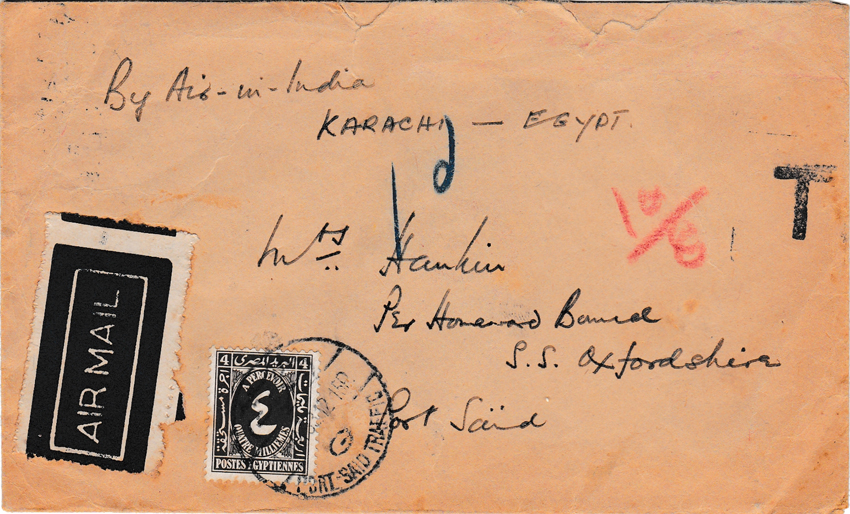 By Air-in-India
KARACHI — EGYPT.
1d
T
Mrs Hankin
Per Homeward Bound
S.S. Oxfordshire
Port Saïd
AIR MAIL
4 البريد المصرى 4
A PERCEVOIR
٤
QUATRE MILLIEMES
POSTES EGYPTIENNES
PORT-SAID TRAFFIC